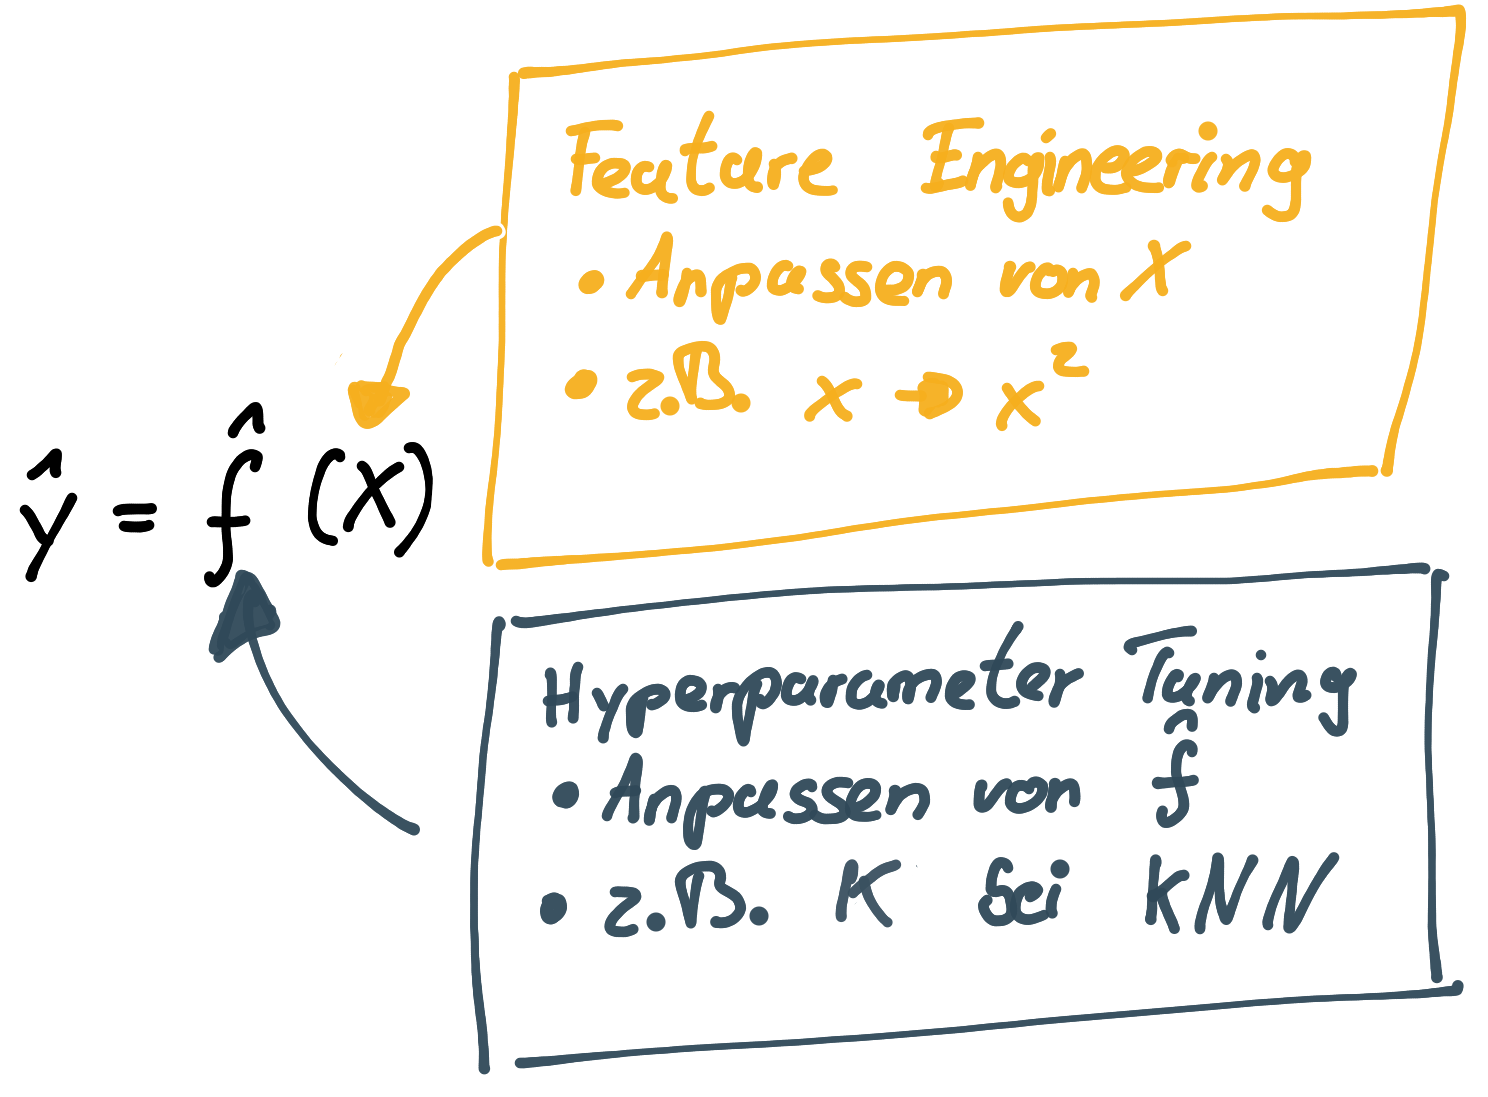 Feature Engineering
• Anpassen von X
• z.B. x → x²
ŷ = f̂ (X)
Hyperparameter Tuning
• Anpassen von f̂
• z.B. K bei KNN